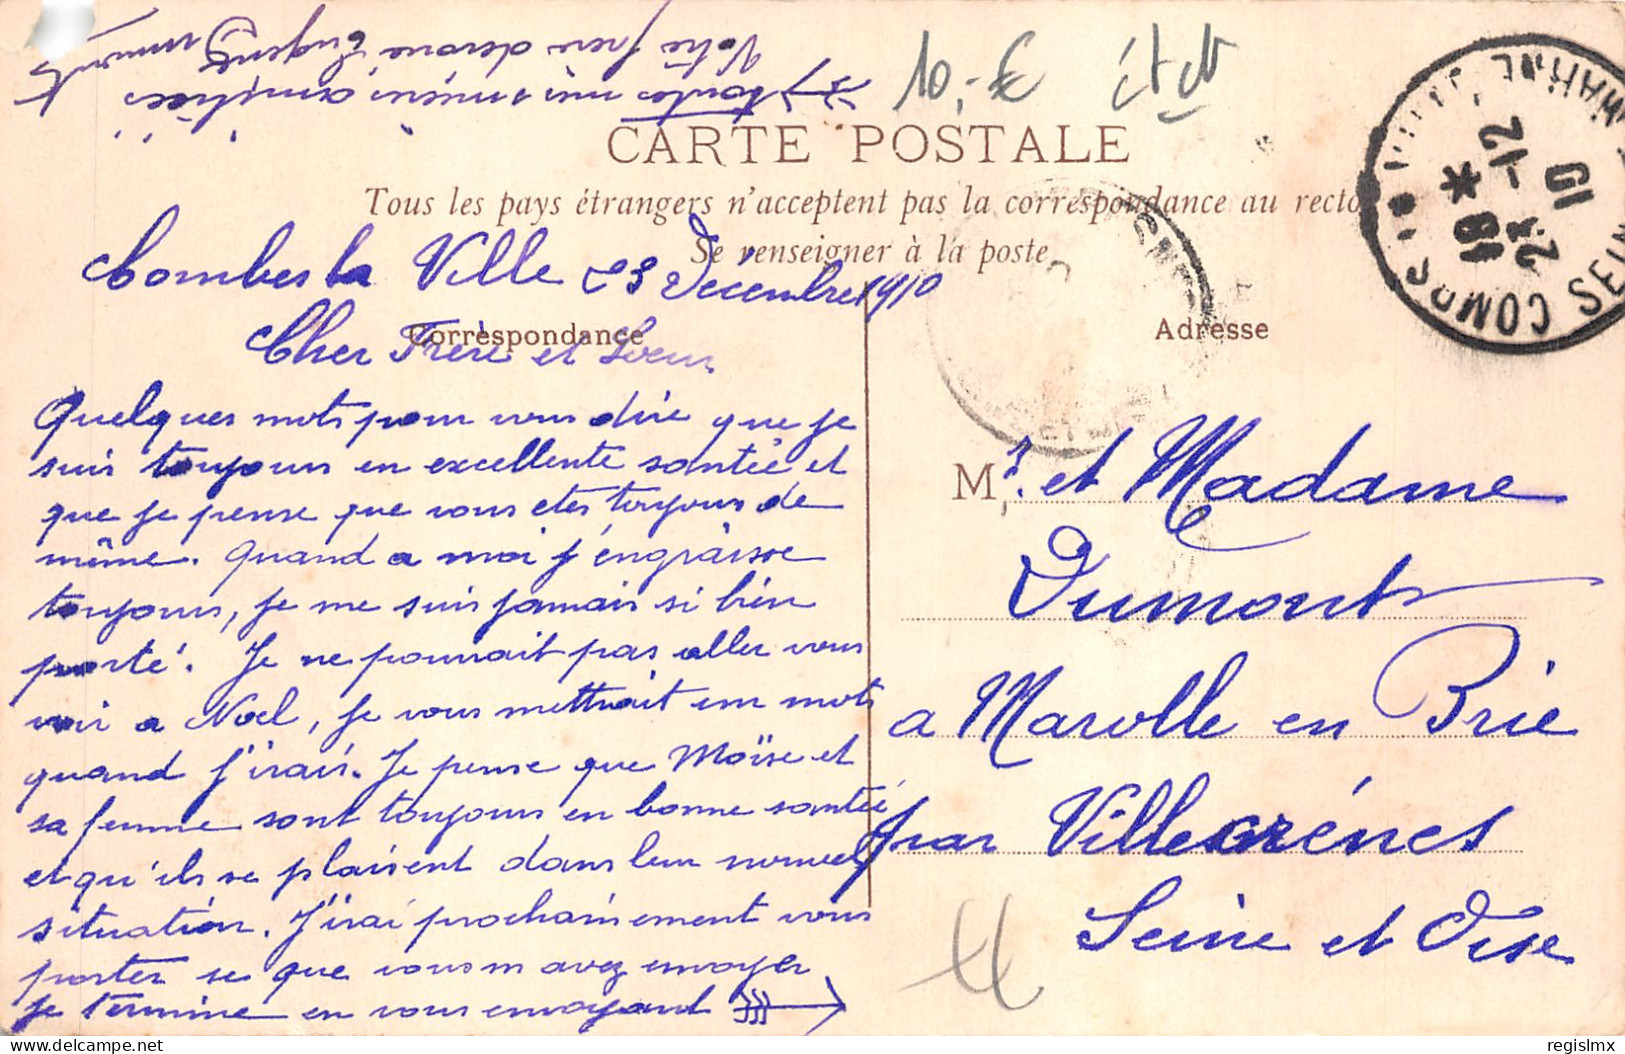 10,-€
CARTE POSTALE
Tous les pays étrangers n'acceptent pas la correspondance au recto
Se renseigner à la poste
Combes la Ville 23 Décembre 1910
Correspondance
Cher Frère et Soeur
Quelques mots pour vous dire que je
suis toujours en excellente santée et
que je pense que vous etes toujours de
même. Quand a moi j'engraisse
toujours, je me suis jamais si bien
porté. Je ne pourrait pas aller vous
voir a Noel, je vous mettrait un mot
quand j'irais. Je pense que Moïse et
sa femme sont toujours en bonne santée
et qu'ils se plaisent dans leur nouvel
situation. J'irai prochainement vous
porter se que vous m avez envoyer
je termine en vous envoyant
toutes mes amitiées
Votre frère dévoué Eugène
Adresse
M.r et Madame
Dumont
a Marolle en Brie
par Villecrénes
Seine et Oise
COMBS LA VILLE SEINE
18 *
23 -12
10
regislmx
delcampe.net